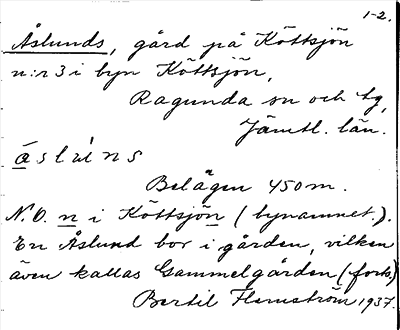 1-2.
Åslunds, gård på Köttsjön
n:r 3 i byn Köttsjön,
Ragunda sn och tg,
Jämtl. län.
áslùns
Belägen 450 m.
N.O. n i Köttsjön (bynamnet).
En Åslund bor i gården, vilken
även kallas Gammelgården (forts)
Bertil Flemström 1937.